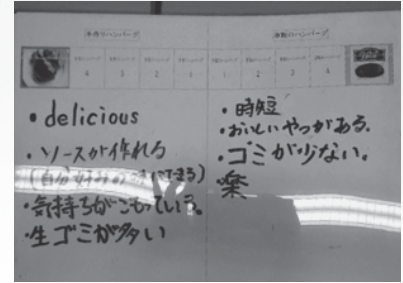 手作りハンバーグ
市販のハンバーグ
4 3 2 1 1 2 3 4
・delicious
・ソースが作れる
(自分好みの できる)
・気持ちがこもっている。
・生ゴミが多い
・時短
・おいしいやつがある。
・ゴミが少ない。
楽